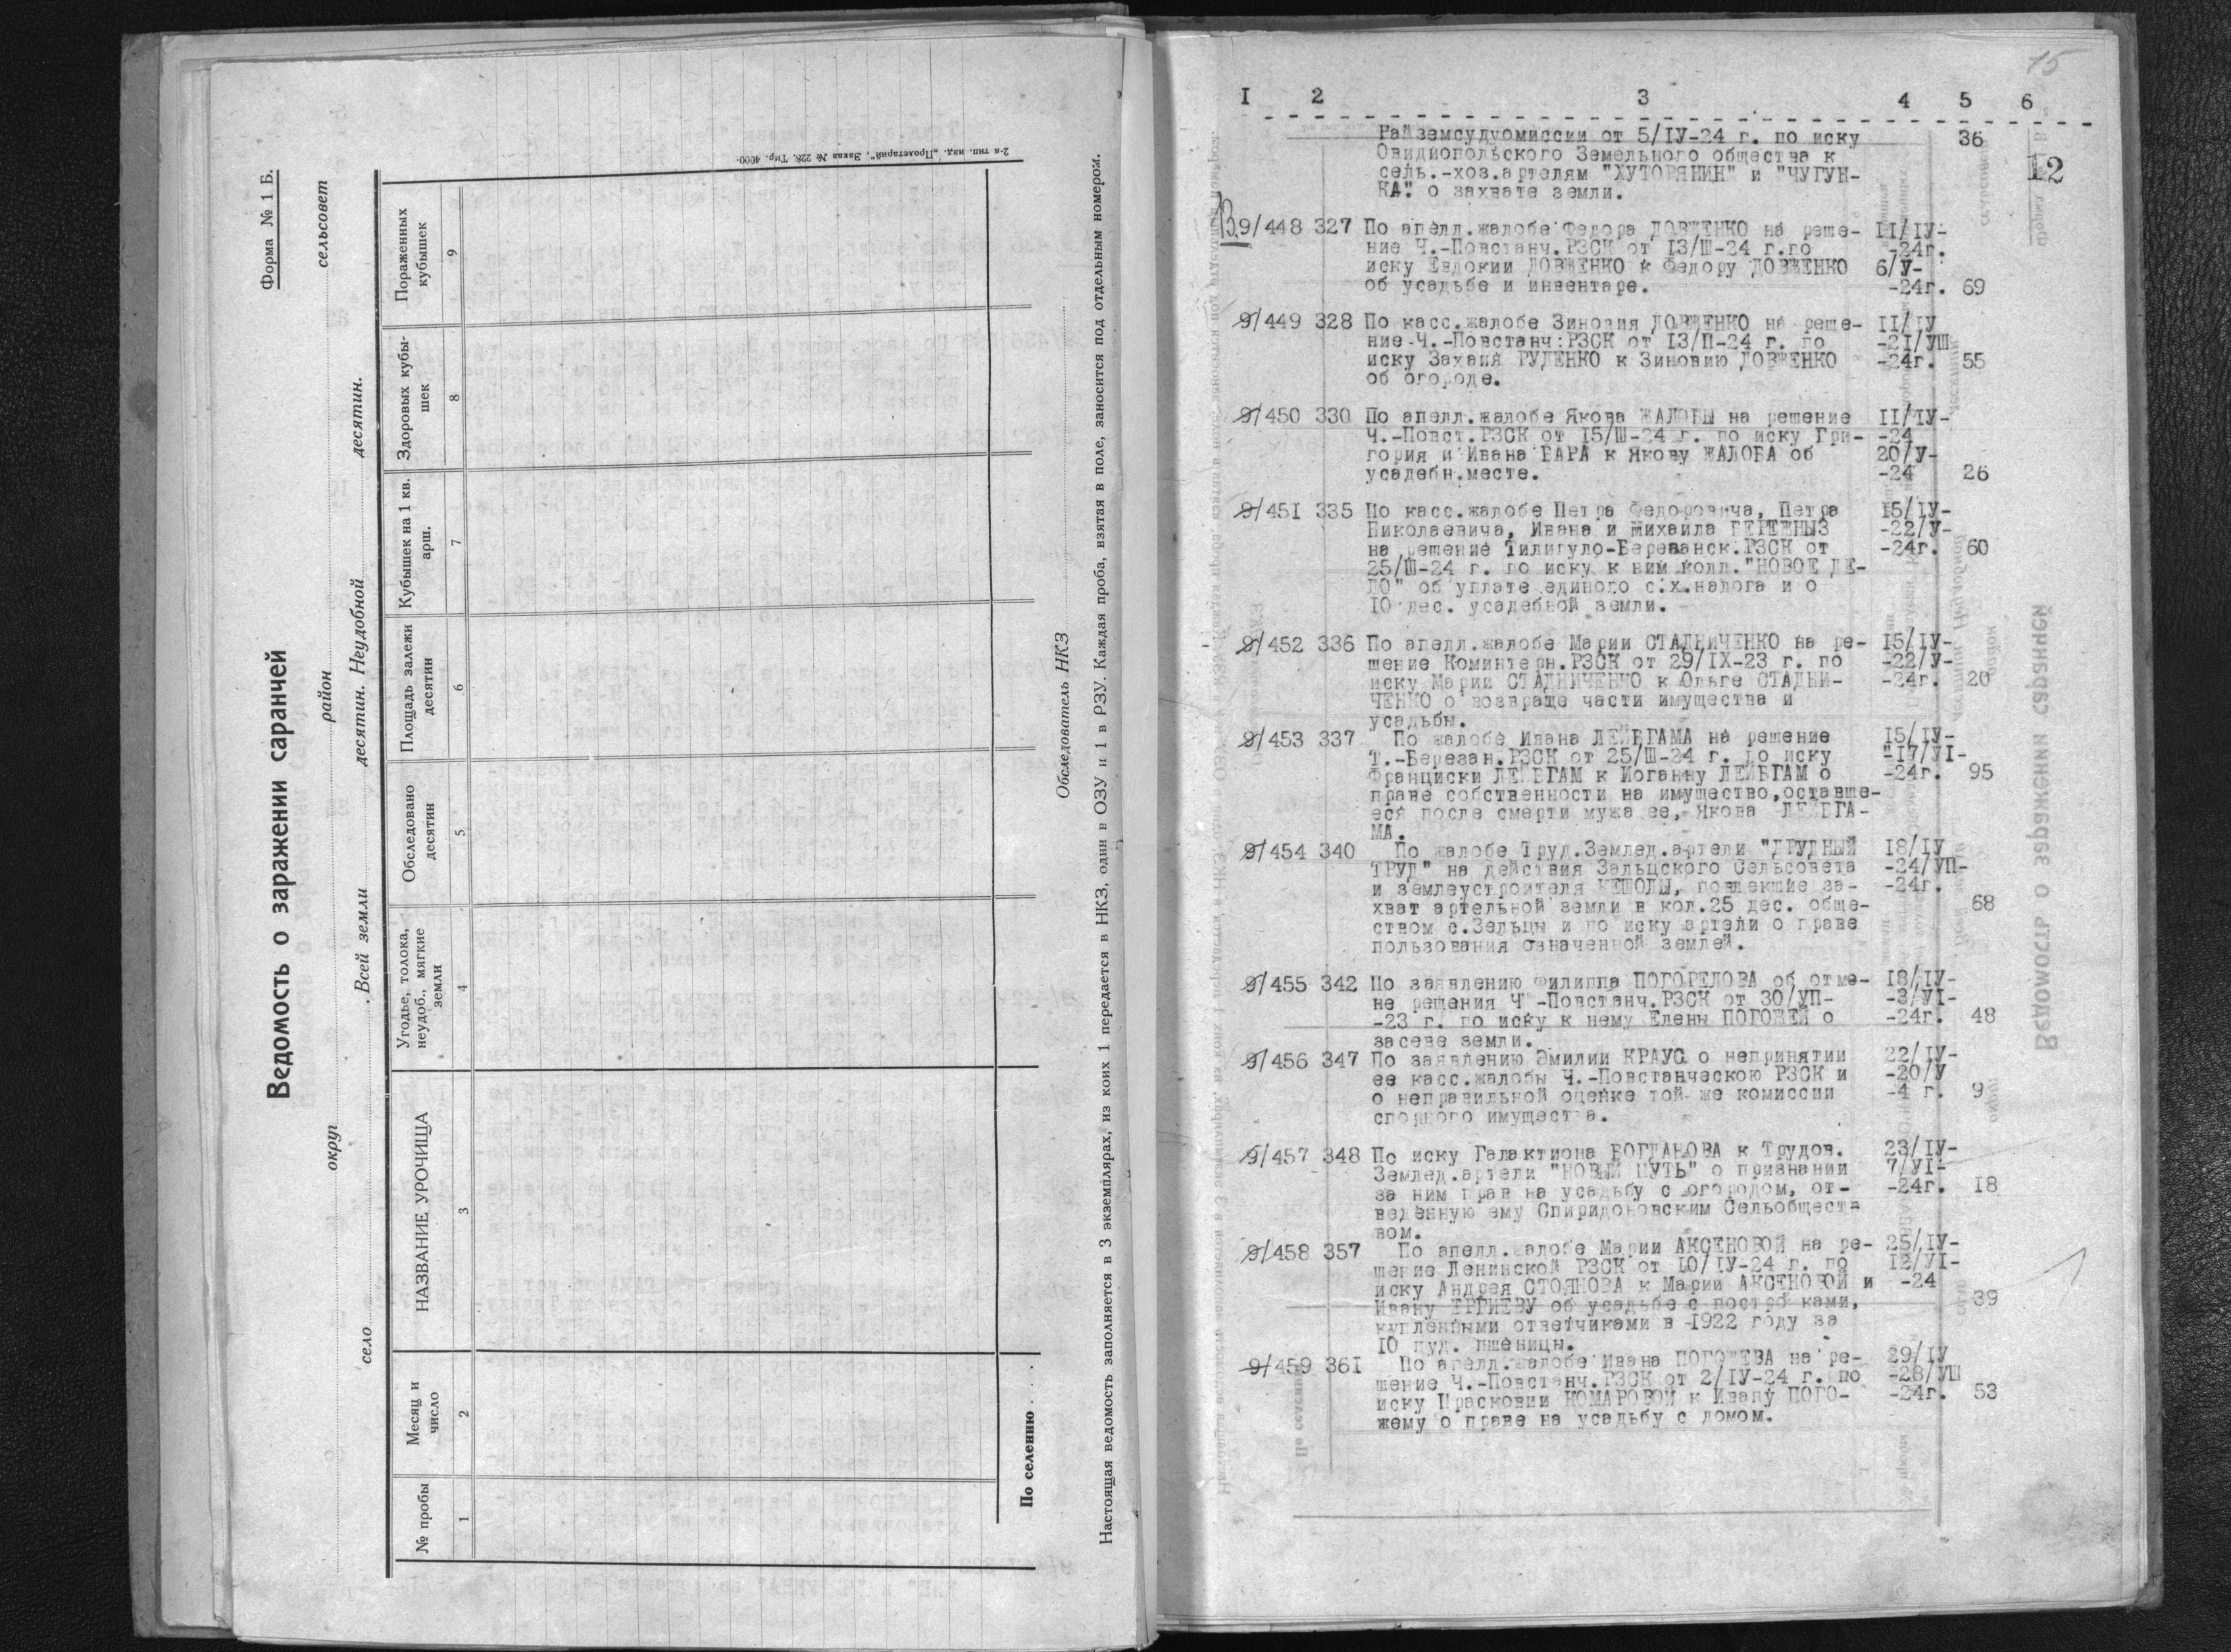 Форма № 1 Б.
Ведомость о заражении саранчей
округ район сельсовет
село Всей земли десятин. Неудобной десятин.
№ пробы
Месяц и число
НАЗВАНИЕ УРОЧИЩА
Угодье, толока, неудоб., мягкие земли
Обследовано десятин
Площадь залежи десятин
Кубышек на 1 кв. арш.
Здоровых кубы-
шек
Пораженных кубышек
1 2 3 4 5 6 7 8 9
По селению . . . .
Обследователь НКЗ
Настоящая ведомость заполняется в 3 экземплярах, из коих 1 передается в НКЗ, один в ОЗУ и 1 в РЗУ. Каждая проба, взятая в поле, заносится под отдельным номером.
2-я тип. изд. „Пролетарий“. Заказ № 228. Тир. 4000.
15
I 2 3 4 5 6
Райземсудкомиссии от 5/IУ-24 г. по иску 36
Овидиопольского Земельного общества к
сель.-хоз.артелям "ХУТОРЯНИН" и "ЧУГУН-
КА" о захвате земли.
12
13
9/448 327 По апелл.жалобе Федора ДОВЖЕНКО на реше- II/IУ-
ние Ч.-Повстанч.РЗСК от 13/Ш-24 г.по -24г.
иску Евдокии ДОВЖЕНКО к Федору ДОВЖЕНКО 6/У-
об усадьбе и инвентаре. -24г. 69
9/449 328 По касс.жалобе Зиновия ДОВЖЕНКО на реше- II/IУ
ние Ч.-Повстанч.РЗСК от 13/П-24 г. по -21/УШ
иску Захаия РУДЕНКО к Зиновию ДОВЖЕНКО -24г. 55
об огороде.
9/450 330 По апелл.жалобе Якова ЖАЛОБЫ на решение II/IУ-
Ч.-Повст.РЗСК от 15/Ш-24 г. по иску Гри- -24
гория и Ивана ВАРА к Якову ЖАЛОБА об 20/У-
усадебн.месте. -24 26
9/451 335 По касс.жалобе Петра Федоровича, Петра 15/IУ-
Николаевича, Ивана и Михаила -22/У-
на решение Тилигуло-Березанск.РЗСК от -24г. 60
25/Ш-24 г. по иску к ним колл."НОВОЕ ДЕ-
ЛО" об уплате единого с.х.налога и о
10 дес. усадебной земли.
9/452 336 По апелл.жалобе Марии СТАДНИЧЕНКО на ре- 15/IУ-
шение Коминтерн.РЗСК от 29/IX-23 г. по -22/У-
иску Марии СТАДНИЧЕНКО к Ольге СТАДНИ- -24г. 20
ЧЕНКО о возвраще части имущества и
усадьбы.
9/453 337 По жалобе Ивана ЛЕЙБГАМА на решение 15/IУ-
Т.-Березан.РЗСК от 25/Ш-24 г. по иску -17/УI-
Франциски ЛЕЙБГАМ к Иоганну ЛЕЙБГАМ о -24г. 95
праве собственности на имущество,оставше-
еся после смерти мужа ее,- Якова ЛЕЙБГА-
МА.
9/454 340 По жалобе Труд.Землед.артели "ДРУДНЫЙ 18/IУ
ТРУД" на действия Зельцского Сельсовета -24/УП-
и землеустроителя КЕШОЛЫ, повлекшие за- -24г.
хват артельной земли в кол.25 дес. обще- 68
ством с.Зельцы и по иску артели о праве
пользования означенной землей.
9/455 342 По заявлению Филиппа ПОГОРЕЛОВА об отме- 18/IУ-
не решения Ч -Повстанч.РЗСК от 30/УП- -3/УI-
-23 г. по иску к нему Елены ПОГОВЕЙ о -24г. 48
засеве земли.
9/456 347 По заявлению Эмилии КРАУС о непринятии 22/IУ-
ее касс.жалобы Ч.-Повстанческою РЗСК и -20/У
о неправильной оценке той же комиссии -4 г. 9
спорного имущества.
9/457 348 По иску Галактиона БОГДАНОВА к Трудов. 23/IУ-
Землед.артели "НОВЫЙ ПУТЬ" о признании 7/УI-
за ним прав на усадьбу с огородом, от- -24г. 18
веденную ему Спиридоновским Сельобщест-
вом.
9/458 357 По апелл.жалобе Марии АКСЕНОВОЙ на ре- 25/IУ-
шение Ленинской РЗСК от 10/IУ-24 г. по 12/УI-
иску Андрея СТОЯНОВА к Марии АКСЕНОВОЙ и -24
Ивану об усадьбе с построй ками, 39
купленными ответчиками в 1922 году за
10 пуд. пшеницы.
9/459 361 По апелл.жалобе Ивана ПОГОЖЕВА на ре- 29/IУ
шение Ч.-Повстанч.РЗСК от 2/IУ-24 г. по -28/УШ
иску Прасковии КОМАРОВОЙ к Ивану ПОГО- -24г. 53
жему о праве на усадьбу с домом.